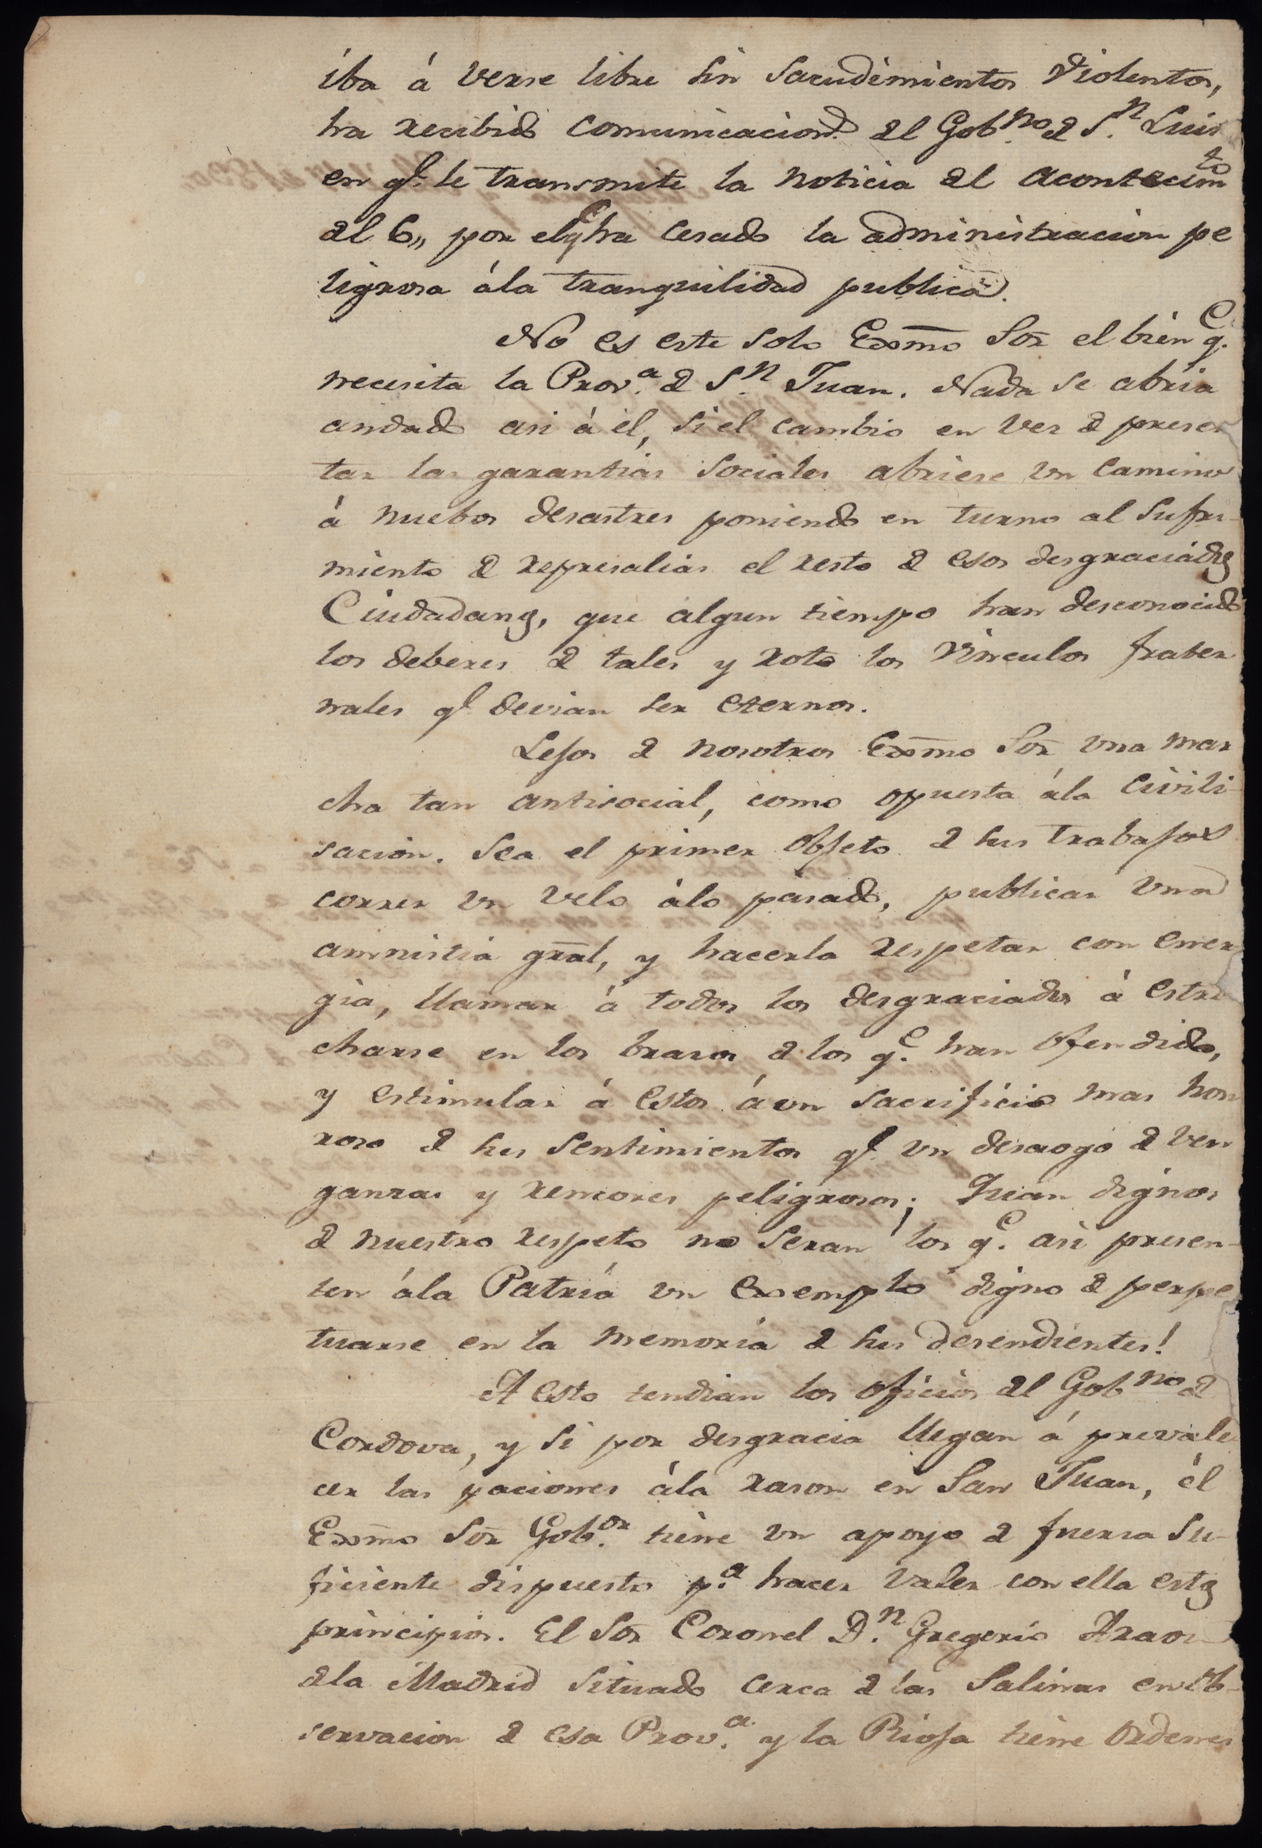 iba á verse libre sin sacudimientos violentos,
ha recibido comunicaciones del Gob.no de S.n Luis
en q.e le transmite la noticia del acontecim.to
del 6,, por el q.e ha cesado la administracion pe
ligrosa ála tranquilidad publica.
No es este solo Exmo Sor el bien q.e
necesita la Prov.a de S.n Juan. Nada se abria
andado asi á él, si el cambio en ves de presen
tar las garantias sociales abriese un camino
á nuebos desastres poniendo en turno al sufri-
miento de represalias el resto de esos desgraciados
Ciudadanos, que algun tiempo han desconocido
los deberes de tales y roto los vinculos frater
nales q.e devian ser eternos.
Lejos de nosotros Exmo Sor una mar
cha tan antisocial, como opuesta ála civili-
sacion. Sea el primer objeto de sus trabajos
correr un velo álo pasado, publicar una
amnistia gral, y hacerla respetar con ener
gia, llamar á todos los desgraciados á estre
charse en los brasos de los q.e han ofendido,
y estimular á estos á un sacrificio mas hon
roso de sus sentimientos q.e un desaogo de ven
ganzas y rencores peligrosos; Quan dignos
de nuestro respeto no seran los q.e asi presen-
ten ála Patria un exemplo digno de perpe
tuarse en la memoria de sus desendientes!
A esto tendian los oficios del Gob.no de
Cordova, y si por desgracia llegan á prevale
cer las paciones ála rason en San Juan, él
Exmo Sor Gob.or tiene un apoyo de fuersa su-
ficiente dispuesto p.a hacer valer con ella estos
principios. El Sor Coronel D.n Gregorio Araoz
dela Madrid situado cerca de las Salinas en ob-
servacion de esa Prov.a y la Rioja tiene ordenes